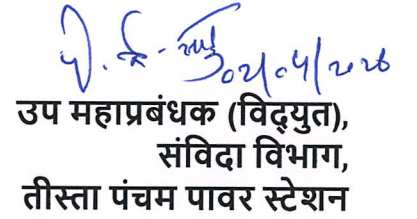 02/04/2026
उप महाप्रबंधक (विद्युत),
संविदा विभाग,
तीस्ता पंचम पावर स्टेशन